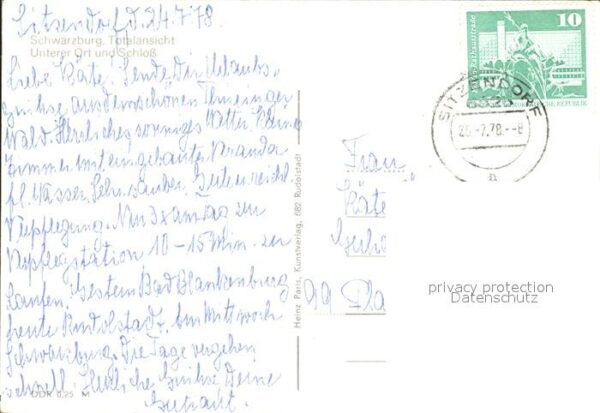 Sitzendorf d. 24.7.78
Schwarzburg, Totalansicht
Unterer Ort und Schloß
Liebe Käte! Sende Dir Urlaubs-
grüsse aus dem schönen Thüringer
Wald. Herrliches, sonniges Wetter. Kleines
Zimmer mit eingebauter Veranda
fl. Wasser. Sehr sauber. Gutes reichl.
Verpflegung. Nur 3x am Tag zur
Verpflegstation 10-15 Min. zu
laufen. Gestern Bad Blankenburg
heute Rudolstadt, am Mittwoch
Schwarzburg. Die Tage vergehen
schnell. Herzliche Grüße Deine
DDR 0,25 M
Heinz Paris, Kunstverlag, 682 Rudolstadt
10
SITZENDORF
25.-7.78.--8
a
Frau
Käte
99 Pla
privacy protection
Datenschutz